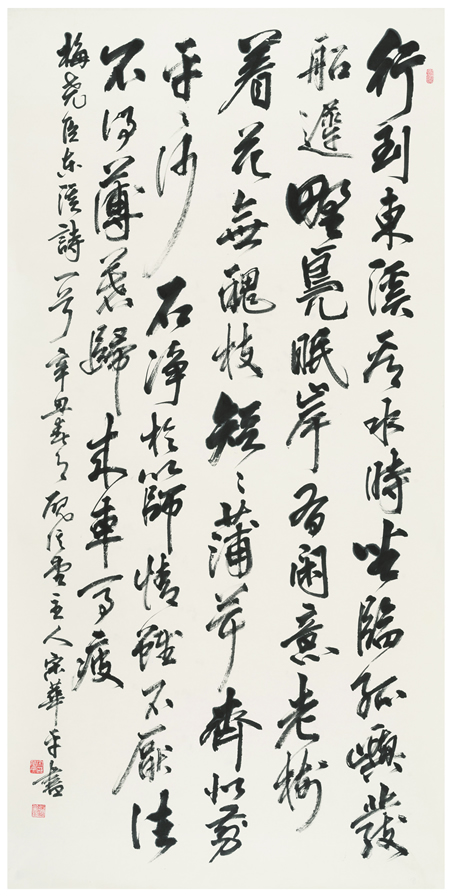 行到東溪看水時坐臨孤嶼發
船遲野鳧眠岸有閑意老樹
着花無醜枝短〻蒲茸齊似剪
平〻沙石淨於篩情雖不厭住
不得薄暮歸来車馬疲
梅堯臣東溪詩一首 辛丑春月 主人宋華平書